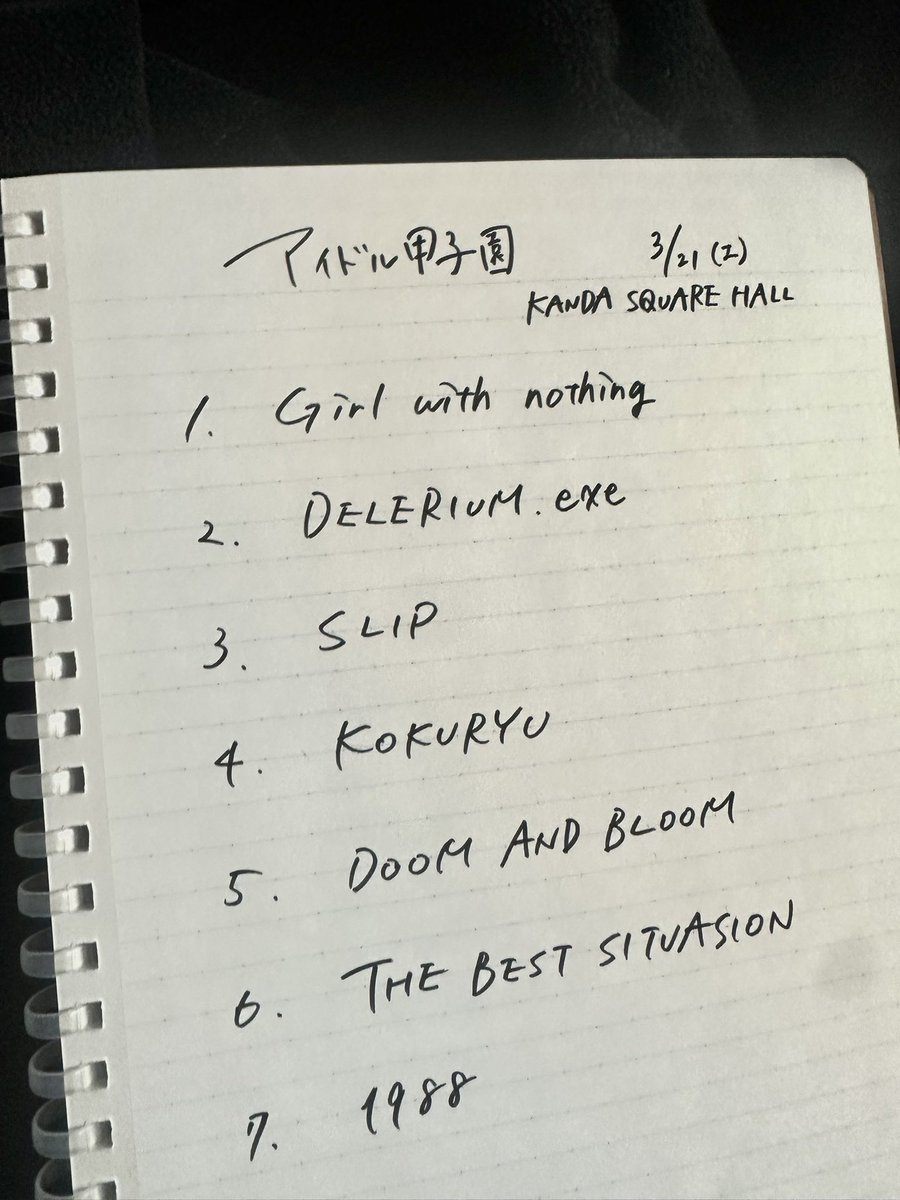 アイドル甲子園
3/21(土)
KANDA SQUARE HALL
1. Girl with nothing
2. DELERIUM.exe
3. SLIP
4. KOKURYU
5. DOOM AND BLOOM
6. THE BEST SITUASION
7. 1988